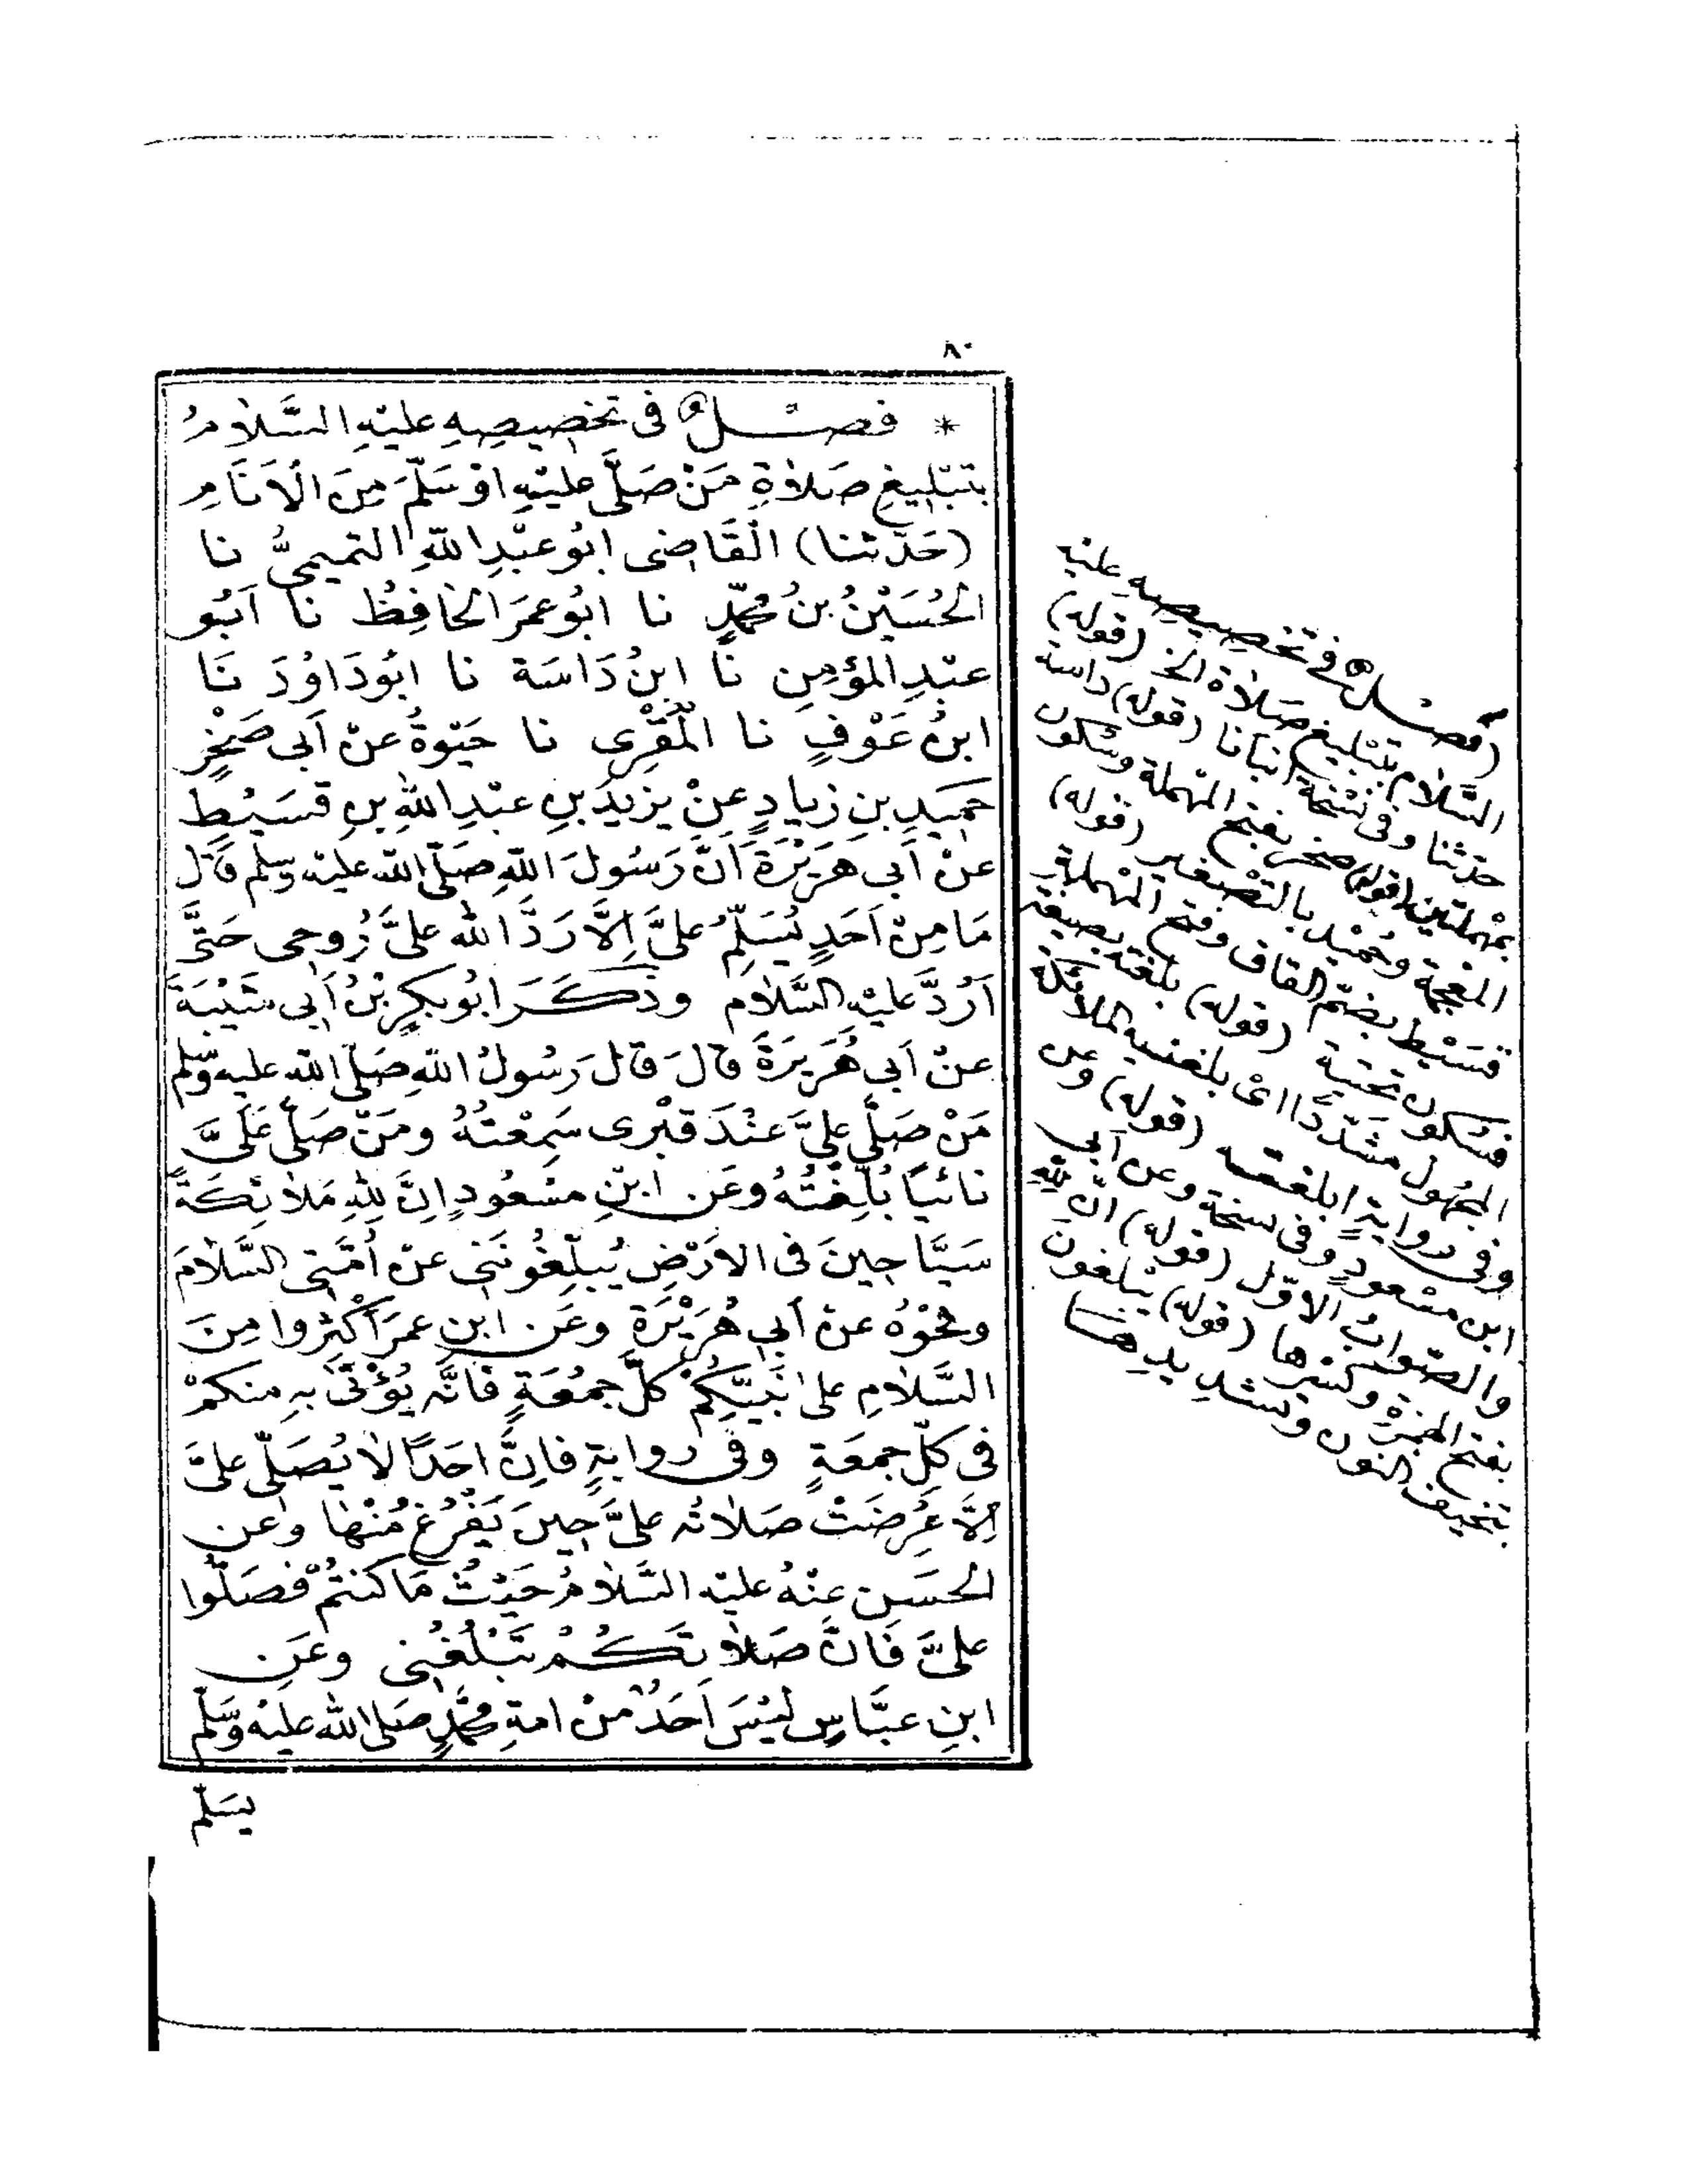 ٨٠
* فصل في تخصيصِهِ عليْهِ السَّلامُ
بتبْليغِ صَلاةِ مَنْ صَلَّى عليْهِ اوْ سَلَّمَ مِنَ الْاَنَامِ
(حَدَّثنا) الْقَاضى ابُو عبْدِ اللّٰهِ التميمىُّ نا
الحُسَيْنُ بنُ محمّدٍ نا ابُو عمَرَ الحَافِظُ نا اَبُو
عبْدِ المؤمِنِ نا ابنُ دَاسَة نا ابُو دَاوُدَ نَا
ابنُ عَوْفٍ نا المُقرِى نا حَيْوةُ عنْ اَبى صَخْرٍ
حميَدِ بنِ زيادٍ عنْ يزيدَ بنِ عبْدِ اللّٰهِ بنِ قسَيْطٍ
عنْ اَبى هرَيْرَةَ اَنَّ رَسُولَ اللّٰهِ صَلّى اللّٰه عليْه وسلم قَالَ
مَا مِنْ اَحَدٍ يُسَلِّمُ علىَّ اِلَّا رَدَّ اللّٰه علىَّ رُوحى حَتَّى
اَرُدَّ عليْهِ السَّلام وذكَرَ ابُو بكرِ بْنُ اَبى شيْبَةَ
عنْ اَبى هُرَيرَةَ قالَ قال رَسُولُ اللّٰهِ صَلّى اللّٰه عليه وسَلّم
مَنْ صَلّى علىَّ عنْدَ قبْرى سَمِعْتُهُ ومَنْ صَلّى عَلَىَّ
نائيًا بُلِّغْتُهُ وعَن ابْنِ مسْعُودٍ اِنَّ لِلّٰهِ مَلائكَةً
سَيَّاحِينَ فى الارْضِ يُبلّغُونَنى عنْ اُمَّتِى السَّلامَ
ونحْوُهُ عنْ اَبى هُرَيْرَةِ وعَن ابنِ عمرَ اَكْثِروا مِنَ
السَّلامِ على نَبيّكُمْ كلَّ جمعَةٍ فانَّه يُؤْتَى بهِ منكمْ
فى كلِّ جمعَةٍ وفى روايةٍ فاِنَّ احَدًا لا يُصَلّى علىَّ
اِلَّا عُرِضَتْ صَلاتُه علىَّ حِينَ يَفْرُغ مُنْها وعن
الحسَن عنْهُ عليْه السَّلامُ حَيْثُ مَا كنتُمْ فصَلُّوا
علىَّ فَانَّ صَلاتكُمْ تَبْلُغُنِى وعَن
ابنِ عبَّاسٍ ليْسَ اَحَدٌ منْ امةِ محمَّدٍ صَلى اللّٰه عليْه وَسَلّم
يسَلّم
(فصْل) فى تخصيصه عليْه
السَّلام بتبْليغ صَلاة الخ (قوله)
حدّثنا وفى نسْخة انبانا (قوله) داسة
بمهْملتين (قوله) صخر بفتح المهْملة وسْكون
المعْجمة وحُميْد بالتصْغير (قوله)
قسَيْط بضمّ القاف وفتح المهْملة
فسْكون تحتية (قوله) بلغته بصيغة
المجهُول مشدّدًا اى بلغنيه الملائكة
وفى رواية ابلغته (قوله) وعن
ابن مسْعود وفى نسخة وعن اَبى
والصّوابُ الاوّل (قوله) انّ للّٰه
بفتح الهمزة وكسْرها (قوله) يبْلغون
بتخفيف النون وتشديدها